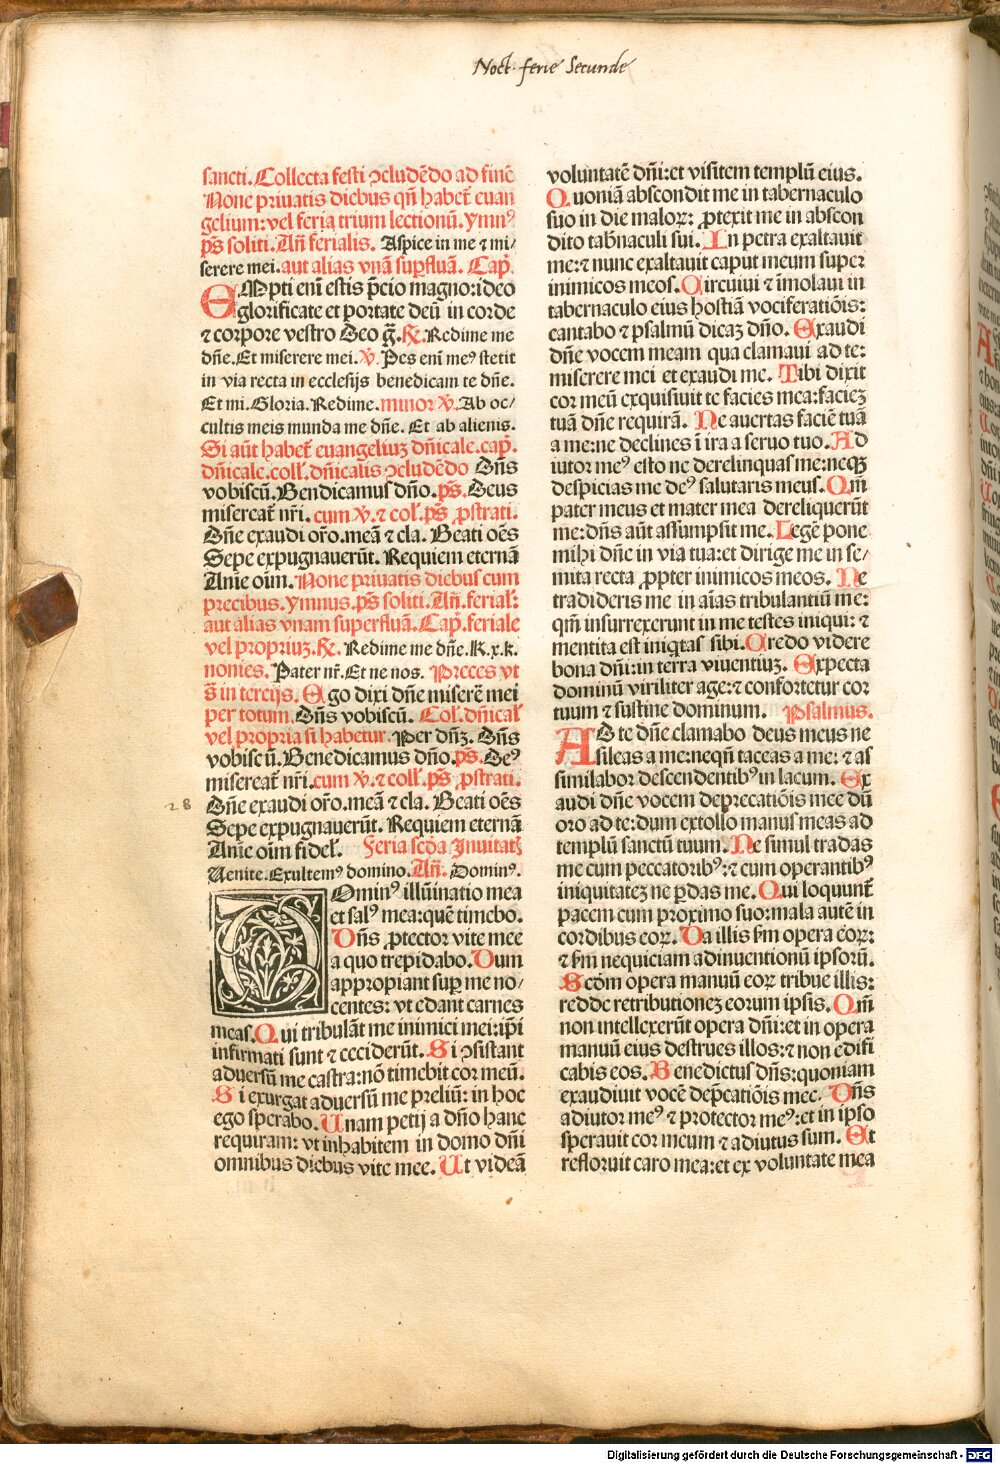 Noct. ferie Secunde
sancti. Collecta festi ↄcludẽdo ad finẽ
None priuatis diebus qñ habet̃ euan
gelium: vel feria trium lectionũ. Ymnꝰ
p̃s soliti. Añ ferialis. Aspice in me ⁊ mi/
serere mei. aut alias vnã suꝑfluã. Cap̃.
EMpti eni estis p̃cio magno: ideo
glorificate et portate deũ in corde
⁊ corpore vestro Deo g̃. R̃. Redime me
dñe. Et miserere mei. V̾. Pes eni meꝰ stetit
in via recta in ecclesijs benedicam te dñe.
Et mi. Gloria. Redime. minor V̾. Ab oc/
cultis meis munda me dñe. Et ab alienis.
Si aũt habet̃ euangeliuꝫ dñicale. cap̃.
dñicale. coll̃. dñicalis ↄcludẽdo Dñs
vobiscũ. Bendicamus dño. p̃s. Deus
misereat̃ nr̃i. cum V̾. ⁊ col̃. p̃s ꝓstrati.
Dñe exaudi or̃o. meã ⁊ cla. Beati oẽs
Sepe expugnauerũt. Requiem eternã
Anie oim. None priuatis diebus cum
precibus. Ymnus. p̃s soliti. Añ. ferial̃:
aut alias vnam superfluã. Cap̃. feriale
vel propriuꝫ. R̃. Redime me dñe. K. x. k.
nonies. Pater nr̃. Et ne nos. Preces vt
s̃ in tercijs. Ego dixi dñe miserẽ mei
per totum. Dñs vobiscũ. Col̃. dñical̃
vel propria si habetur. Per dñꝫ. Dñs
vobiscũ. Benedicamus dño. p̃s. Deꝰ
misereat̃ nr̃i. cum V̾. ⁊ coll̃. p̃s ꝓstrati.
28
Dñe exaudi or̃o. meã ⁊ cla. Beati oẽs
Sepe expugnauerũt. Requiem eternã
Anie oim fidel̃. Feria scd̃a Inuitatꝫ
Uenite. Exultemꝰ domino. Añ. Dominꝰ.
DOminꝰ illũinatio mea
et salꝰ mea: quẽ timebo.
Dñs ꝓtector vite mee
a quo trepidabo. Dum
appropiant suꝑ me no/
centes: vt edant carnes
meas. Qui tribulãt me inimici mei: ip̃i
infirmati sunt ⁊ ceciderũt. Si ↄsistant
aduersũ me castra: nõ timebit cor meũ.
Si exurgat aduersũ me preliũ: in hoc
ego sperabo. Unam petij a dño hanc
requiram: vt inhabitem in domo dñi
omnibus diebus vite mee. Ut videã
voluntatẽ dñi: et visitem templũ eius.
Quoniã abscondit me in tabernaculo
suo in die maloꝝ: ꝓtexit me in abscon
dito tab̃naculi sui. In petra exaltauit
me: ⁊ nunc exaltauit caput meum super
inimicos meos. Circuiui ⁊ ĩmolaui in
tabernaculo eius hostiã vociferatiõis:
cantabo ⁊ psalmũ dicaꝫ dño. Exaudi
dñe vocem meam qua clamaui ad te:
miserere mei et exaudi me. Tibi dixit
cor meũ exquisiuit te facies mea: facieꝫ
tuã dñe requirã. Ne auertas faciẽ tuã
a me: ne declines ĩ ira a seruo tuo. Ad
iutor meꝰ esto ne derelinquas me: neqꝫ
despicias me deꝰ salutaris meus. Qm̃
pater meus et mater mea dereliquerũt
me: dñs aũt assumpsit me. Legẽ pone
mihi dñe in via tua: et dirige me in se/
mita recta ꝓpter inimicos meos. Ne
tradideris me in aĩas tribulantiũ me:
qm̃ insurrexerunt in me testes iniqui: ⁊
mentita est iniqtas sibi. Credo videre
bona dñi: in terra viuentiuꝫ. Expecta
dominũ viriliter age: ⁊ confortetur cor
tuum ⁊ sustine dominum. Psalmus.
AD te dñe clamabo deus meus ne
sileas a me: neqñ taceas a me: ⁊ as
similabor descendentibꝰ in lacum. Ex
audi dñe vocem deprecatiõis mee dũ
oro ad te: dum extollo manus meas ad
templũ sanctũ tuum. Ne simul tradas
me cum peccatoribꝰ: ⁊ cum operantibꝰ
iniquitateꝫ ne ꝑdas me. Qui loquunt̃
pacem cum proximo suo: mala autẽ in
cordibus eoꝝ. Da illis s̃m opera eoꝝ:
⁊ s̃m nequiciam adinuentionũ ipsorũ.
Scd̃m opera manuũ eoꝝ tribue illis:
redde retributioneꝫ eorum ipsis. Qm̃
non intellexerũt opera dñi: et in opera
manuũ eius destrues illos: ⁊ non edifi
cabis eos. Benedictus dñs: quoniam
exaudiuit vocẽ dep̃catiõis mee. Dñs
adiutor meꝰ ⁊ protector meꝰ: et in ipso
sperauit cor meum ⁊ adiutus sum. Et
refloruit caro mea: et ex voluntate mea
Digitalisierung gefördert durch die Deutsche Forschungsgemeinschaft - DFG